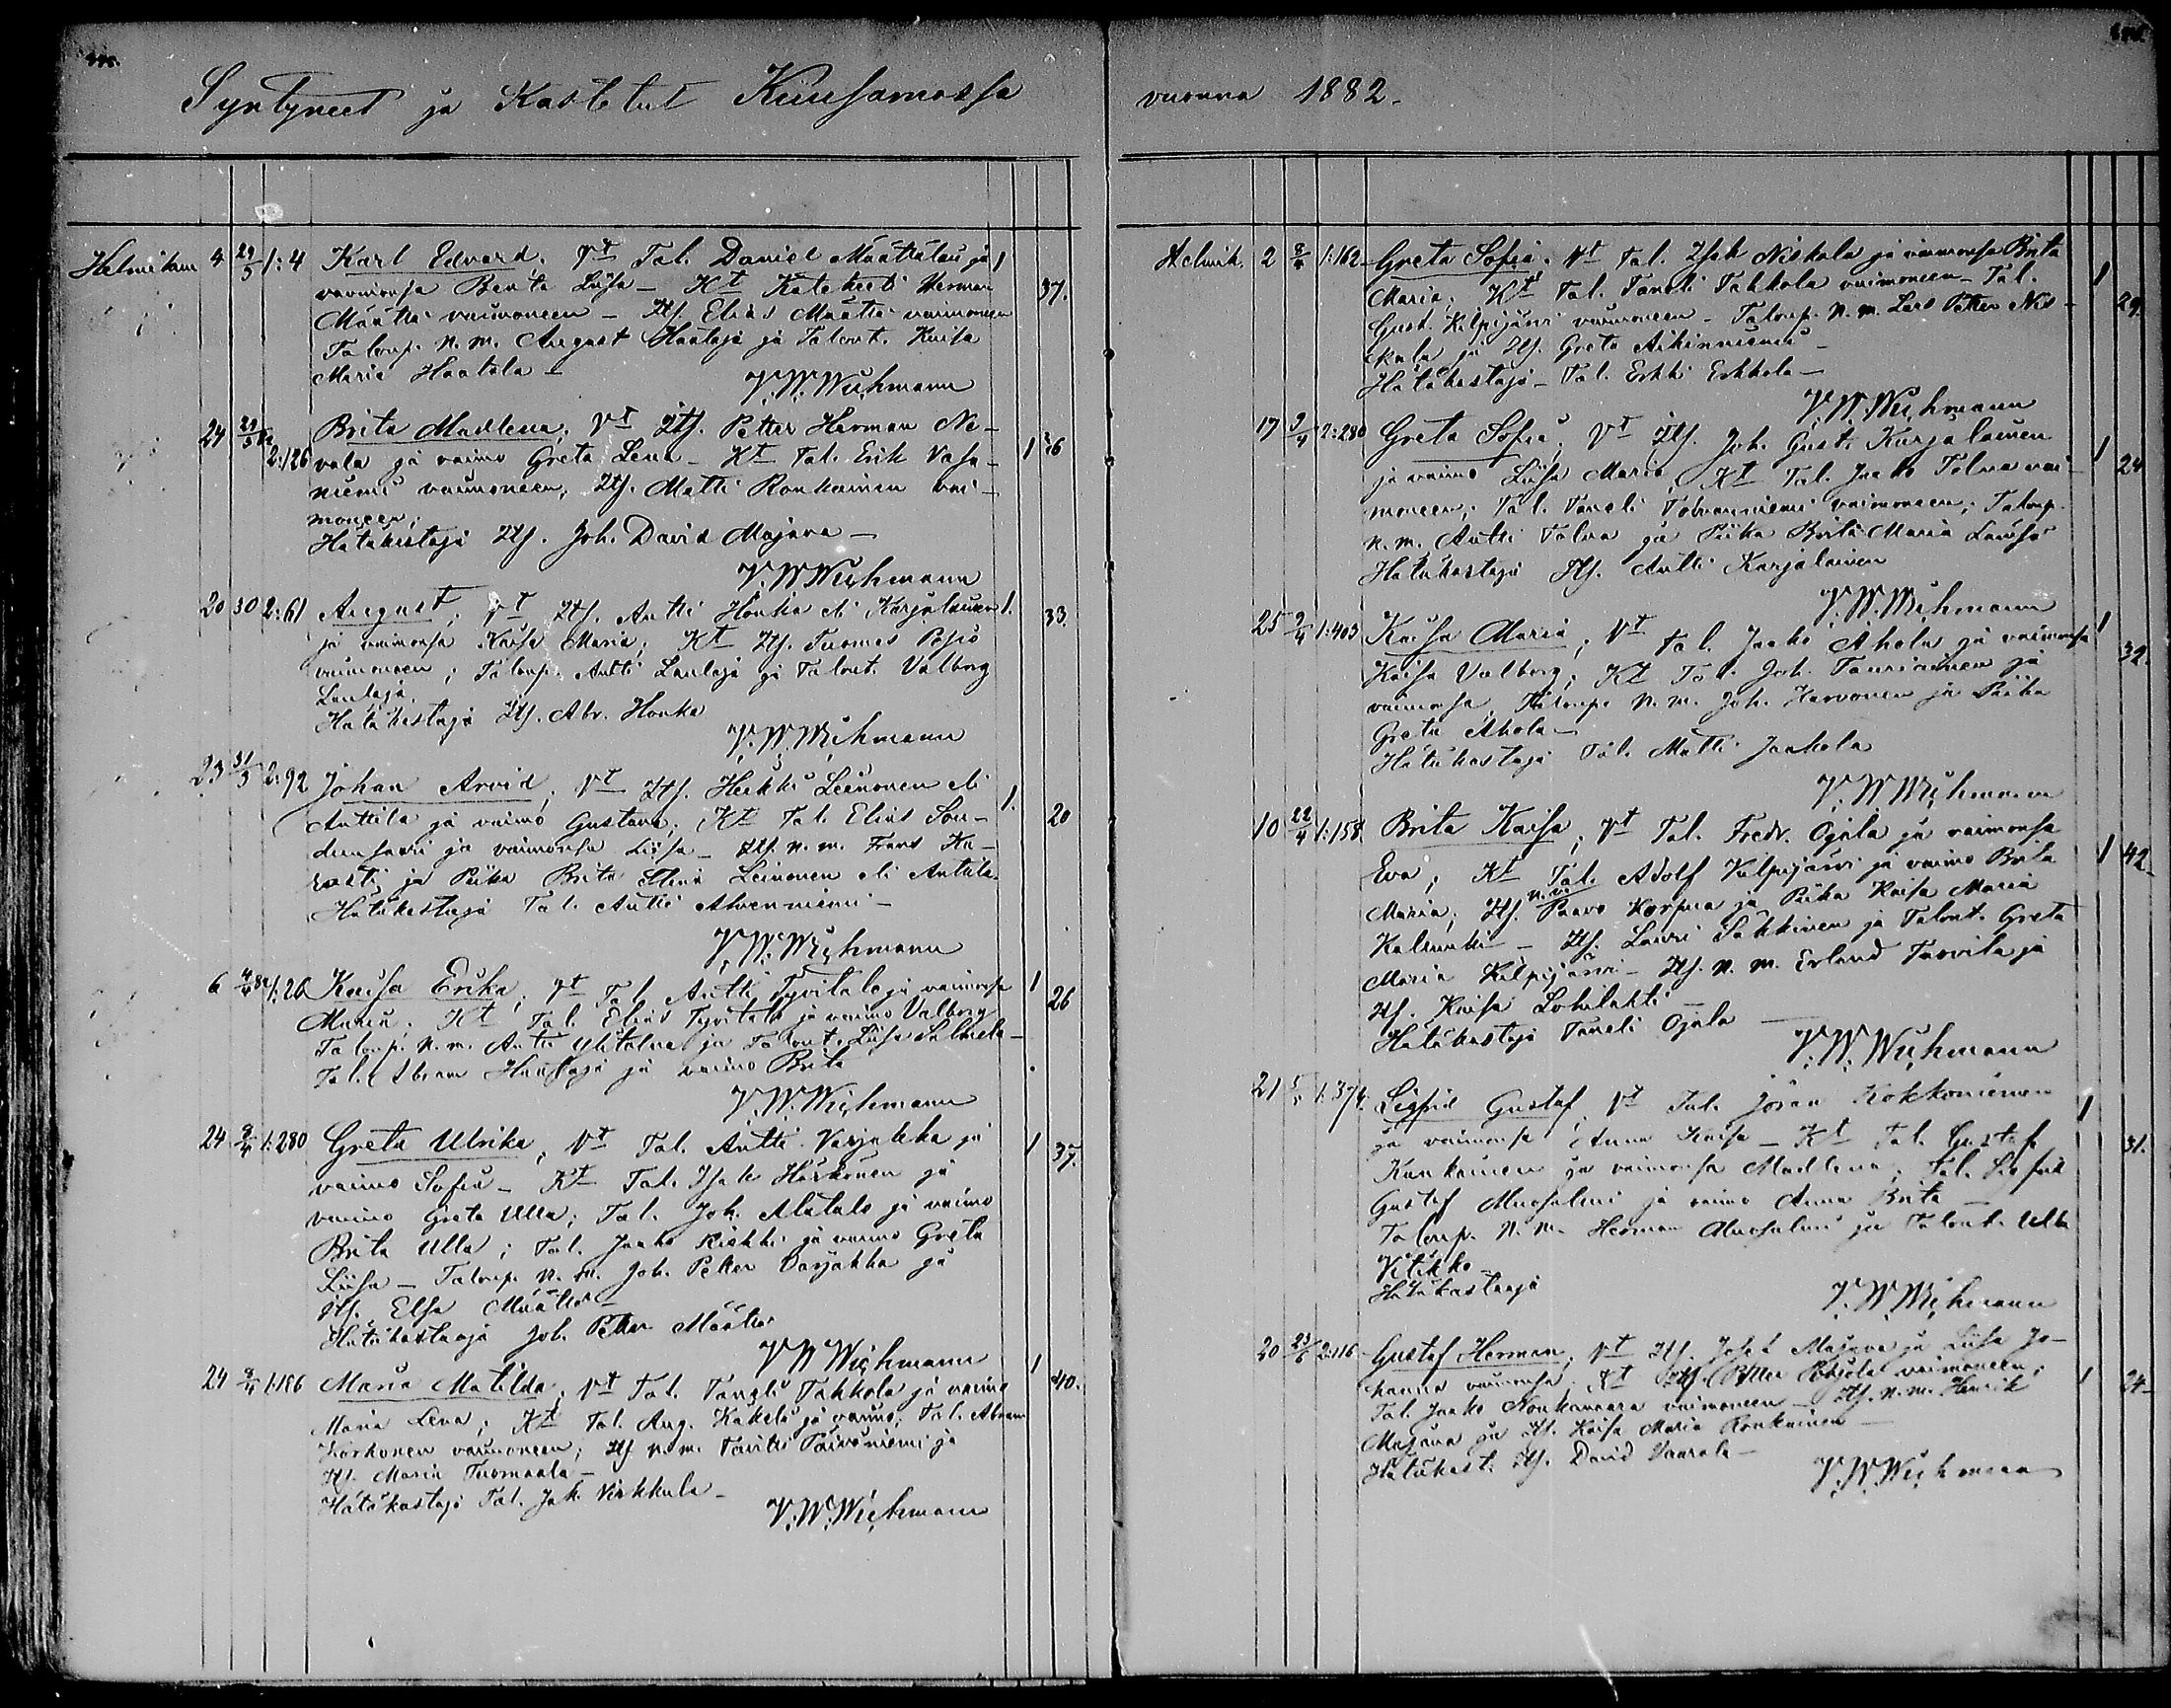 Syntyneet ja Kastetut Kuusamossa
Helmikuu 4 29/3 1:4 Karl Edvard. Vt Tal. Daniel Määttälän ja 1
vaimonsa Benta Liisa – Kt Katekeeti Herman 37.
Määttä vaimoneen – Itf. Elias Määttä vaimoneen
Taloup. n. m. August Haataja ja Talont. Kaisa
Maria Haatala –
V. W. Wichmann
24 29/3 2:126 Brita Madlena; Vt Itf. Petter Herman Ne-
vala ja vaimo Greta Lena – Kt Tal. Erik Vasa- 1 26
niemi vaimoneen, Itf. Matti Ronkainen vai-
moneen;
Hätäkastaja Itf. Joh. David Majava –
V. W. Wichmann
20 30 2:61 August; Vt Itf. Antti Honka eli Karjalainen 1. 33.
ja vaimonsa Kaisa Maria; Kt Itf. Tuomas Posio
vaimoneen; Taloup. Antti Laulaja ja Talont. Valborg
Laulaja.
Hätäkastaja Itf. Abr. Honka
V. W. Wichmann
23 31/3 2:92 Johan Arvid; Vt Itf. Heikki Leinonen eli 1.
Anttila ja vaimo Gustava; Kt Tal. Elias Sou- 20
ja vaimonsa Liisa – Itf. n. m. Frans
ja Piika Brita Leinonen eli Anttila.
Hätäkastaja Tal. Antti Ahvenniemi –
V. W. Wichmann
6 4/4 1:26 Kaisa Erika; Vt Tal. Antti Tyvitalo ja vaimonsa 1 26
Maria. Kt Tal. Elias Tyvitalo ja vaimo Valborg
Taloup. n. m. Antti Ylitalo ja Talont. Liisa
Tal. Abram ja vaimo Brita
V. W. Wichmann
24 8/4 1:280 Greta Ulrika; Vt Tal. Antti Varjakka ja 1 37.
vaimo Sofia – Kt Tal. Isak Härkönen ja
vaimo Greta Ulla; Tal. Joh. Alatalo ja vaimo
Brita Ulla; Tal. Jaako Riekki ja vaimo Greta
Liisa – Taloup. n. m. Joh. Petter Varjakka ja
Itf. Elsa Määttä –
Hätäkastaaja Joh. Petter Määttä
V W Wichmann
24 8/4 1:186 Maria Matilda; Vt Tal. Taneli Takkola ja vaimo 1 40.
Maria Lena; Kt Tal. Aug. Käkelä ja vaimo; Tal. Abram
Karhonen vaimoneen; Itf. n. m. Taneli Päiväniemi ja
Itf. Maria Tuomaala –
Hätäkastaja Tal. Jak. Virkkula –
V. W. Wichmann
vuonna 1882.
Helmik. 2 8/4 1:162 Greta Sofia; Vt Tal. Isak Niskala ja vaimonsa Brita
Maria; Kt Tal. Taneli Takkola vaimoneen – Tal. 1
Gust. Kilpijärvi vaimoneen – Taloup. n. m. Lars Petter Nis- 29.
kala ja Itf. Greta Aikinniemi –
Hätäkastaja – Tal. Erkki Erkkola –
V. W. Wichmann
17 9/4 2:280 Greta Sofia; Vt Itf. Joh. Gust. Karjalainen 1
ja vaimo Liisa Maria, Kt Tal. Jaako Tolva vai- 24
moneen; Tal. Taneli Tolvanniemi vaimoneen; Taloup.
n. m. Antti Tolva ja Piika Brita Maria
Hätäkastaja Itf. Antti Karjalainen
V. W. Wichmann
25 9/4 1:403 Kaisa Maria; Vt Tal. Jaako Ahola ja vaimonsa 1
Kaisa Valborg; Kt Tal. Joh. Tauriainen ja 32.
vaimonsa, Taloup. n. m. Joh. Karvonen ja Piika
Greta Ahola –
Hätäkastaja Tal. Matti Jaakola
V. W. Wichmann
10 22/4 1:158 Brita Kaisa; Vt Tal. Fredr. Ojala ja vaimonsa
Eva; Kt Tal. Adolf Kilpijärvi ja vaimo Brita 1 42.
Maria; Itf. n. m. Paavo Korpua ja Piika Kaisa Maria
– Itf. Lauri Säkkinen ja Talont. Greta
Maria Kilpijärvi – Itf. n. m. Erland Tarvila ja
Itf. Kaisa Lohilahti –
Hätäkastaja Taneli Ojala –
V. W. Wichmann
21 1:374 Sigfrid Gustaf Vt Tal. Jöran Kokkoniemi 1
ja vaimonsa Anna Kaisa – Kt Tal. Gustaf 31.
ja vaimonsa Madlena; Tal. Sigfrid
Gustaf Muosalmi ja vaimo Anna Brita –
Taloup. n. m. Herman Muosalmi ja Talont. Ulla
Vitikko –
Hätäkastaaja
V. W. Wichmann
20 23/6 2:116 Gustaf Herman, Vt Itf. Josef Majava ja Liisa Jo-
hanna vaimonsa; Kt Itf. Petter Pohjola vaimoneen; 1 24
Tal. Jaako Nonkanaara vaimoneen – Itf. n. m. Henrik
Majava ja Itf. Kaisa Maria Ronkainen –
Hätäkast. Itf. David Vaarala –
V. W. Wichmann